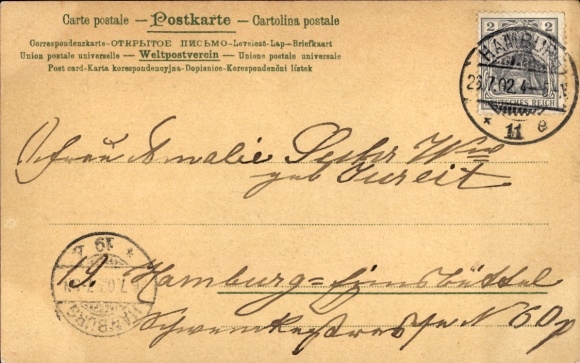 Carte postale – Postkarte – Cartolina postale
Correspondenzkarte–ОТКРЫТОЕ ПИСЬМО–Levelező-Lap–Briefkaart
Union postale universelle – Weltpostverein – Unione postale universale
Post card-Karta korespondencyjna-Dopisnice-Korespondenční lístek
2 2
HAMBURG
7.02.4
REICH
* 11 e
Frau Amalie
geb
* 19 b
HAMBURG
Hamburg=Eimsbüttel
60